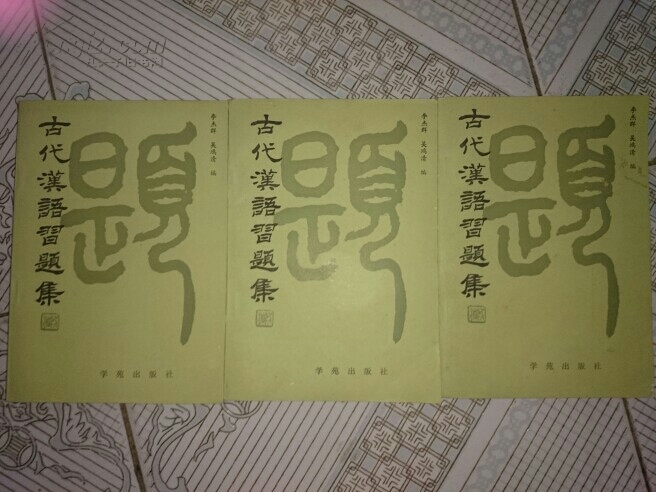 古代漢語習題集
題
李杰群 吴鸿清 编
学苑出版社
古代漢語習題集
題
李杰群 吴鸿清 编
学苑出版社
古代漢語習題集
題
李杰群 吴鸿清 编
学苑出版社